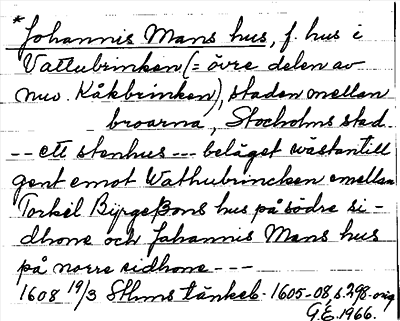 *Johannis Mans hus, f. hus i
Vattubrinken (= övre delen av
nuv. Kåkbrinken), staden mellan
broarna, Stockholms stad.
-- ett stenhus --- beläget wästantill
gent emot Wathubrincken emellan
Torkel Byrgeßons hus på södre si-
dhone och Johannis Mans hus
på norre sidhone ---
1608 19/3 Sthms tänkeb. 1605-08, s. 298. orig
G.E. 1966.